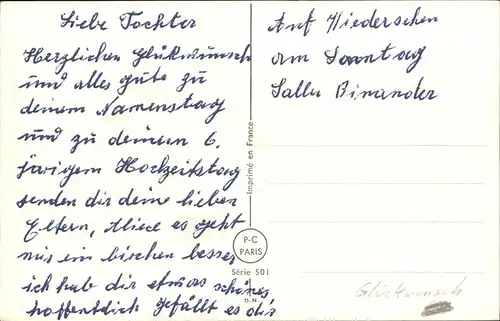 Liebe Tochter
Herzlichen Glükwunsch
und alles gute zu
deinem Namenstag
und zu deinem 6.
järigem Hochzeitstag
senden dir deine lieben
Eltern, Aliece es geht
mir ein bischen besser
ich hab dir etwas schönes
hoffentdlich gefällt es dir
Auf Wiedersehen
am Sonntag
Sallu Binander
Imprimé en France
P-C
PARIS
Série 501
D.N.
Glückwunsch